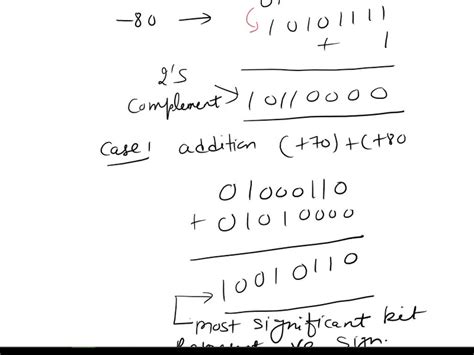 -80 → 10101111
+ 1
2's
complement → 10110000
Case 1 addition (+70)+(+80
01000110
+ 01010000
10010110
most significant bit
sign.